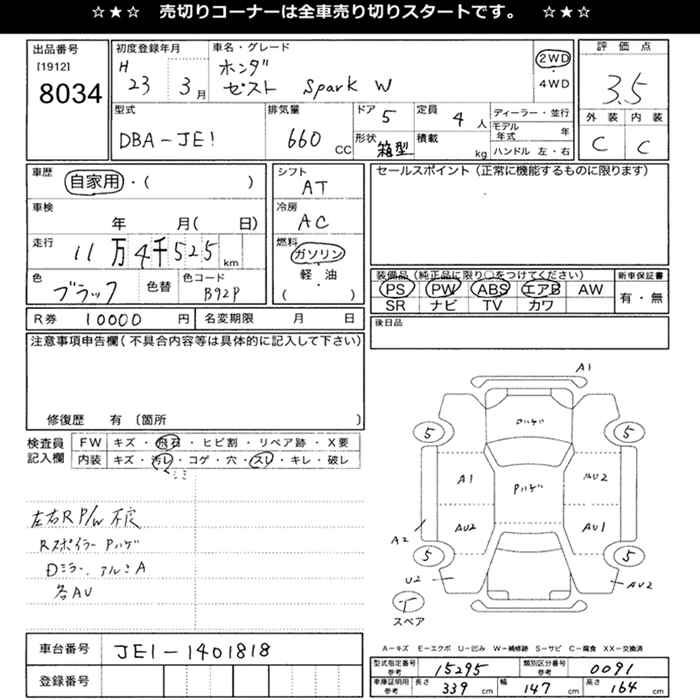 ☆★☆ 売切りコーナーは全車売り切りスタートです。 ☆★☆
出品番号
[1912]
8034
初度登録年月
H 23 3月
車名・グレード
ホンダ
ゼスト Spark W
2WD
・
4WD
評価点
3.5
型式
DBA-JE1
排気量
660 CC
ドア 5
形状 箱型
定員 4 人
積載 kg
ディーラー・並行
モデル年式 年
ハンドル 左・右
外装 内装
C C
車歴
自家用・( )
シフト
AT
セールスポイント(正常に機能するものに限ります)
車検
年 月( 日)
冷房
AC
走行 11万4千525km
燃料
ガソリン
・
軽・油
( )
色
ブラック
色替
色コード
B92P
装備品(純正品に限り○をつけてください)
PS PW ABS エアB AW
SR ナビ TV カワ
新車保証書
有・無
R券 10000 円
名変期限 月 日
後日品
注意事項申告欄(不具合内容等は具体的に記入して下さい)
修復歴 有 〔箇所 〕
検査員記入欄
FW キズ・飛石・ヒビ割・リペア跡・X要
内装 キズ・汚レ・コゲ・穴・スレ・キレ・破レ
シミ
左右R P/W 不良
Rスポイラー Pハゲ
Dミラー、アルミA
各AU
A1
Pハゲ
5 5
A1 Pハゲ AU2
AU2 AU1
A2
5 5
U2 AU2
T
スペア
A-キズ E-エクボ U-凹み W-補修跡 S-サビ C-腐食 XX-交換済
車台番号 JE1-1401818
登録番号
型式指定番号 参考 15295
類別区分番号 参考 0091
車庫証明用 参考 長さ 339 cm 幅 147 cm 高さ 164 cm